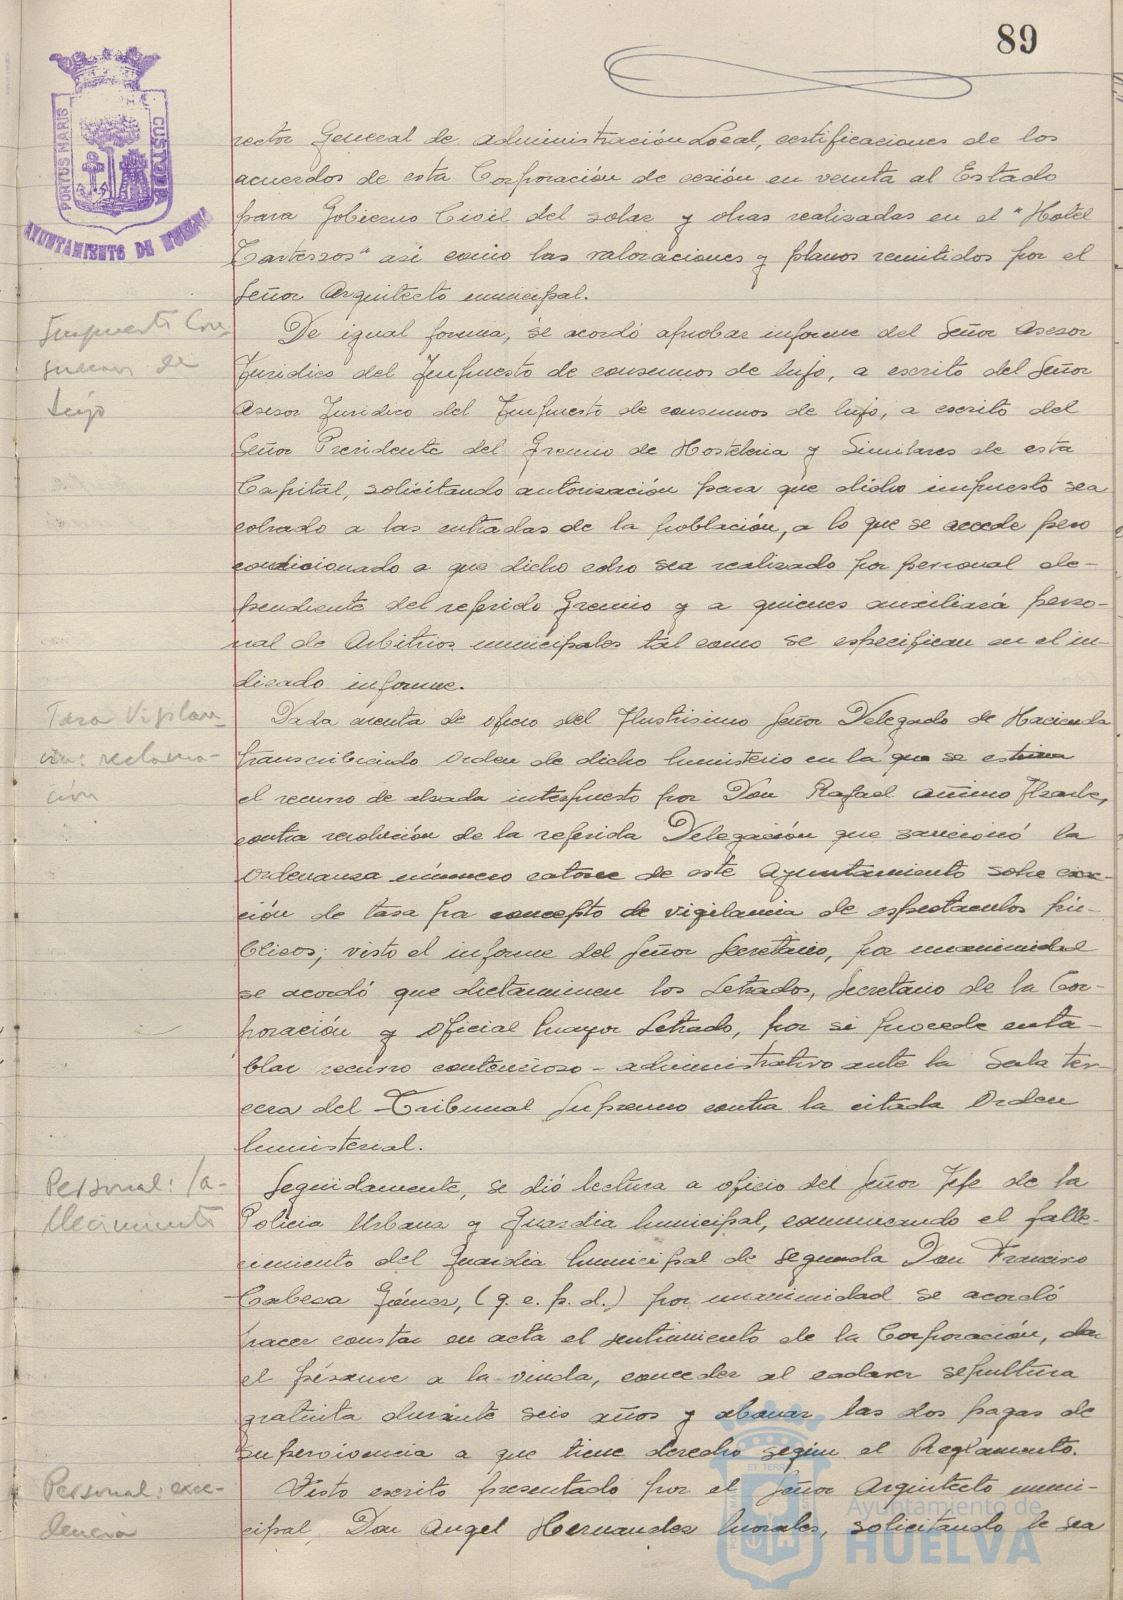 89
PORTUS MARIS
CUSTODIA
AYUNTAMIENTO DE HUELVA
rector General de administración Local, certificaciones de los
acuerdos de esta Corporación de cesión en venta al Estado
para Gobierno Civil del solar y obras realizadas en el "Hotel
Tartessos" asi como las valoraciones y planos remitidos por el
Señor Arquitecto municipal.
Impuesto Con
sumos de
lujo
De igual forma, se acordó aprobar informe del Señor Asesor
Juridico del Impuesto de consumos de lujo, a escrito del Señor
Asesor Juridico del Impuesto de consumos de lujo, a escrito del
Señor Presidente del Gremio de Hosteleria y Similares de esta
Capital, solicitando autorización para que dicho impuesto sea
cobrado a las entradas de la población, a lo que se accede pero
condicionado a que dicho cobro sea realizado por personal de-
pendiente del referido Gremio y a quienes auxiliará perso-
nal de Arbitrios municipales tal como se especifican en el in-
dicado informe.
Tasa Vigilan
cia: reclama-
ción
Dada cuenta de oficio del Ilustrisimo Señor Delegado de Hacienda
transcribiendo Orden de dicho Ministerio en la que se estima
el recurso de alzada interpuesto por Don Rafael
contra resolución de la referida Delegación que sancionó la
Ordenanza número catorce de este Ayuntamiento sobre exac-
ción de tasa por concepto de vigilancia de espectaculos pú-
blicos; visto el informe del Señor Secretario, por unanimidad
se acordó que dictaminen los Letrados, Secretario de la Cor-
poración y Oficial Mayor Letrado, por si procede enta-
blar recurso contencioso-administrativo ante la Sala ter-
cera del Tribunal Supremo contra la citada Orden
Ministerial.
Personal: fa-
llecimiento
Seguidamente, se dió lectura a oficio del Señor Jefe de la
Policia Urbana y Guardia Municipal, comunicando el falle-
cimiento del Guardia Municipal de segunda Don Francisco
Cabeza Gómez, (q. e. p. d.) por unanimidad se acordó
hacer constar en acta el sentimiento de la Corporación, dar
el pésame a la viuda, conceder al cadaver sepultura
gratuita durante seis años y abonar las dos pagas de
supervivencia a que tiene derecho según el Reglamento.
Personal: exce-
dencia
Visto escrito presentado por el Señor Arquitecto muni-
cipal, Don Angel Hernandez Morales, solicitando le sea
Ayuntamiento de
HUELVA